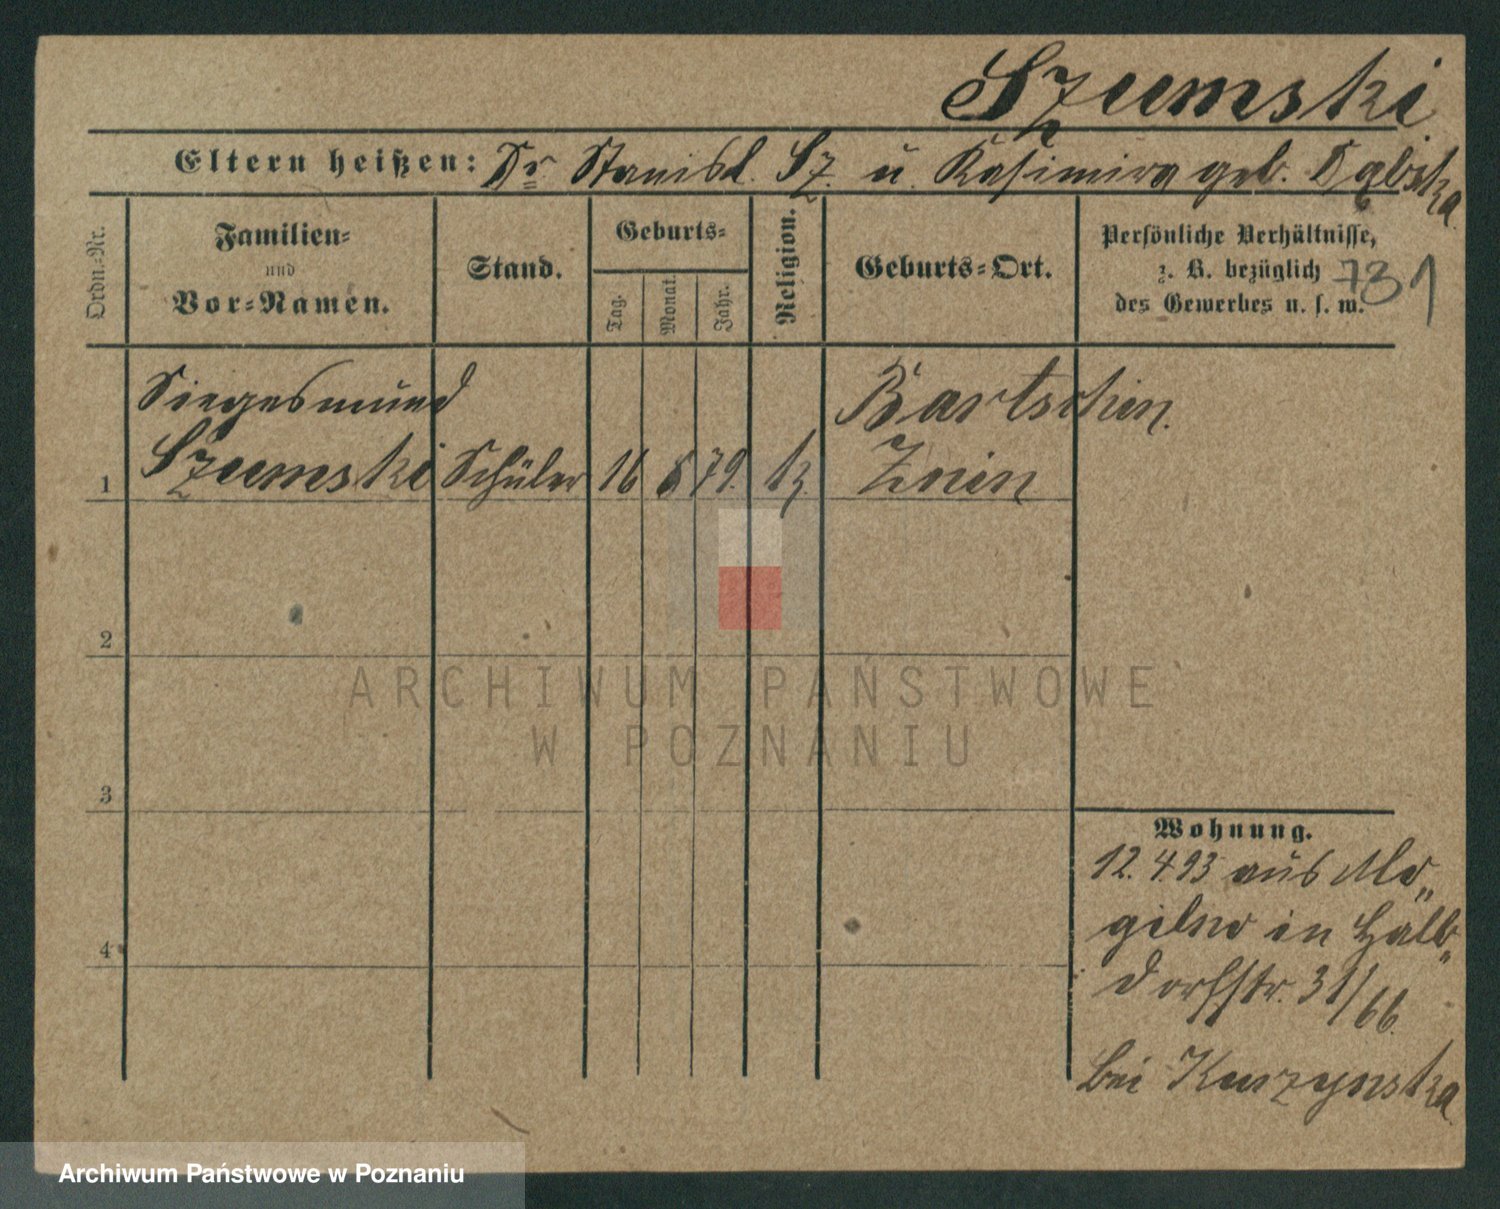 Szumski
Eltern heißen: Dr Stanisl. Sz. u. Kasimira geb. Dąbska
Ordn.-Nr.
Familien-
und
Vor-Namen.
Stand.
Geburts-
Tag.
Monat.
Jahr.
Religion.
Geburts-Ort.
Persönliche Verhältnisse,
z. B. bezüglich
des Gewerbes u. s. w.
731
Siegesmund
Bartschin
1 Szumski Schüler 16 79. k. Znin
2
3
4
Wohnung.
12. 4. 93 aus Mo„
gilno in Halb„
dorfstr. 31/66.
bei Kurzynska
ARCHIWUM PAŃSTWOWE
W POZNANIU
Archiwum Państwowe w Poznaniu